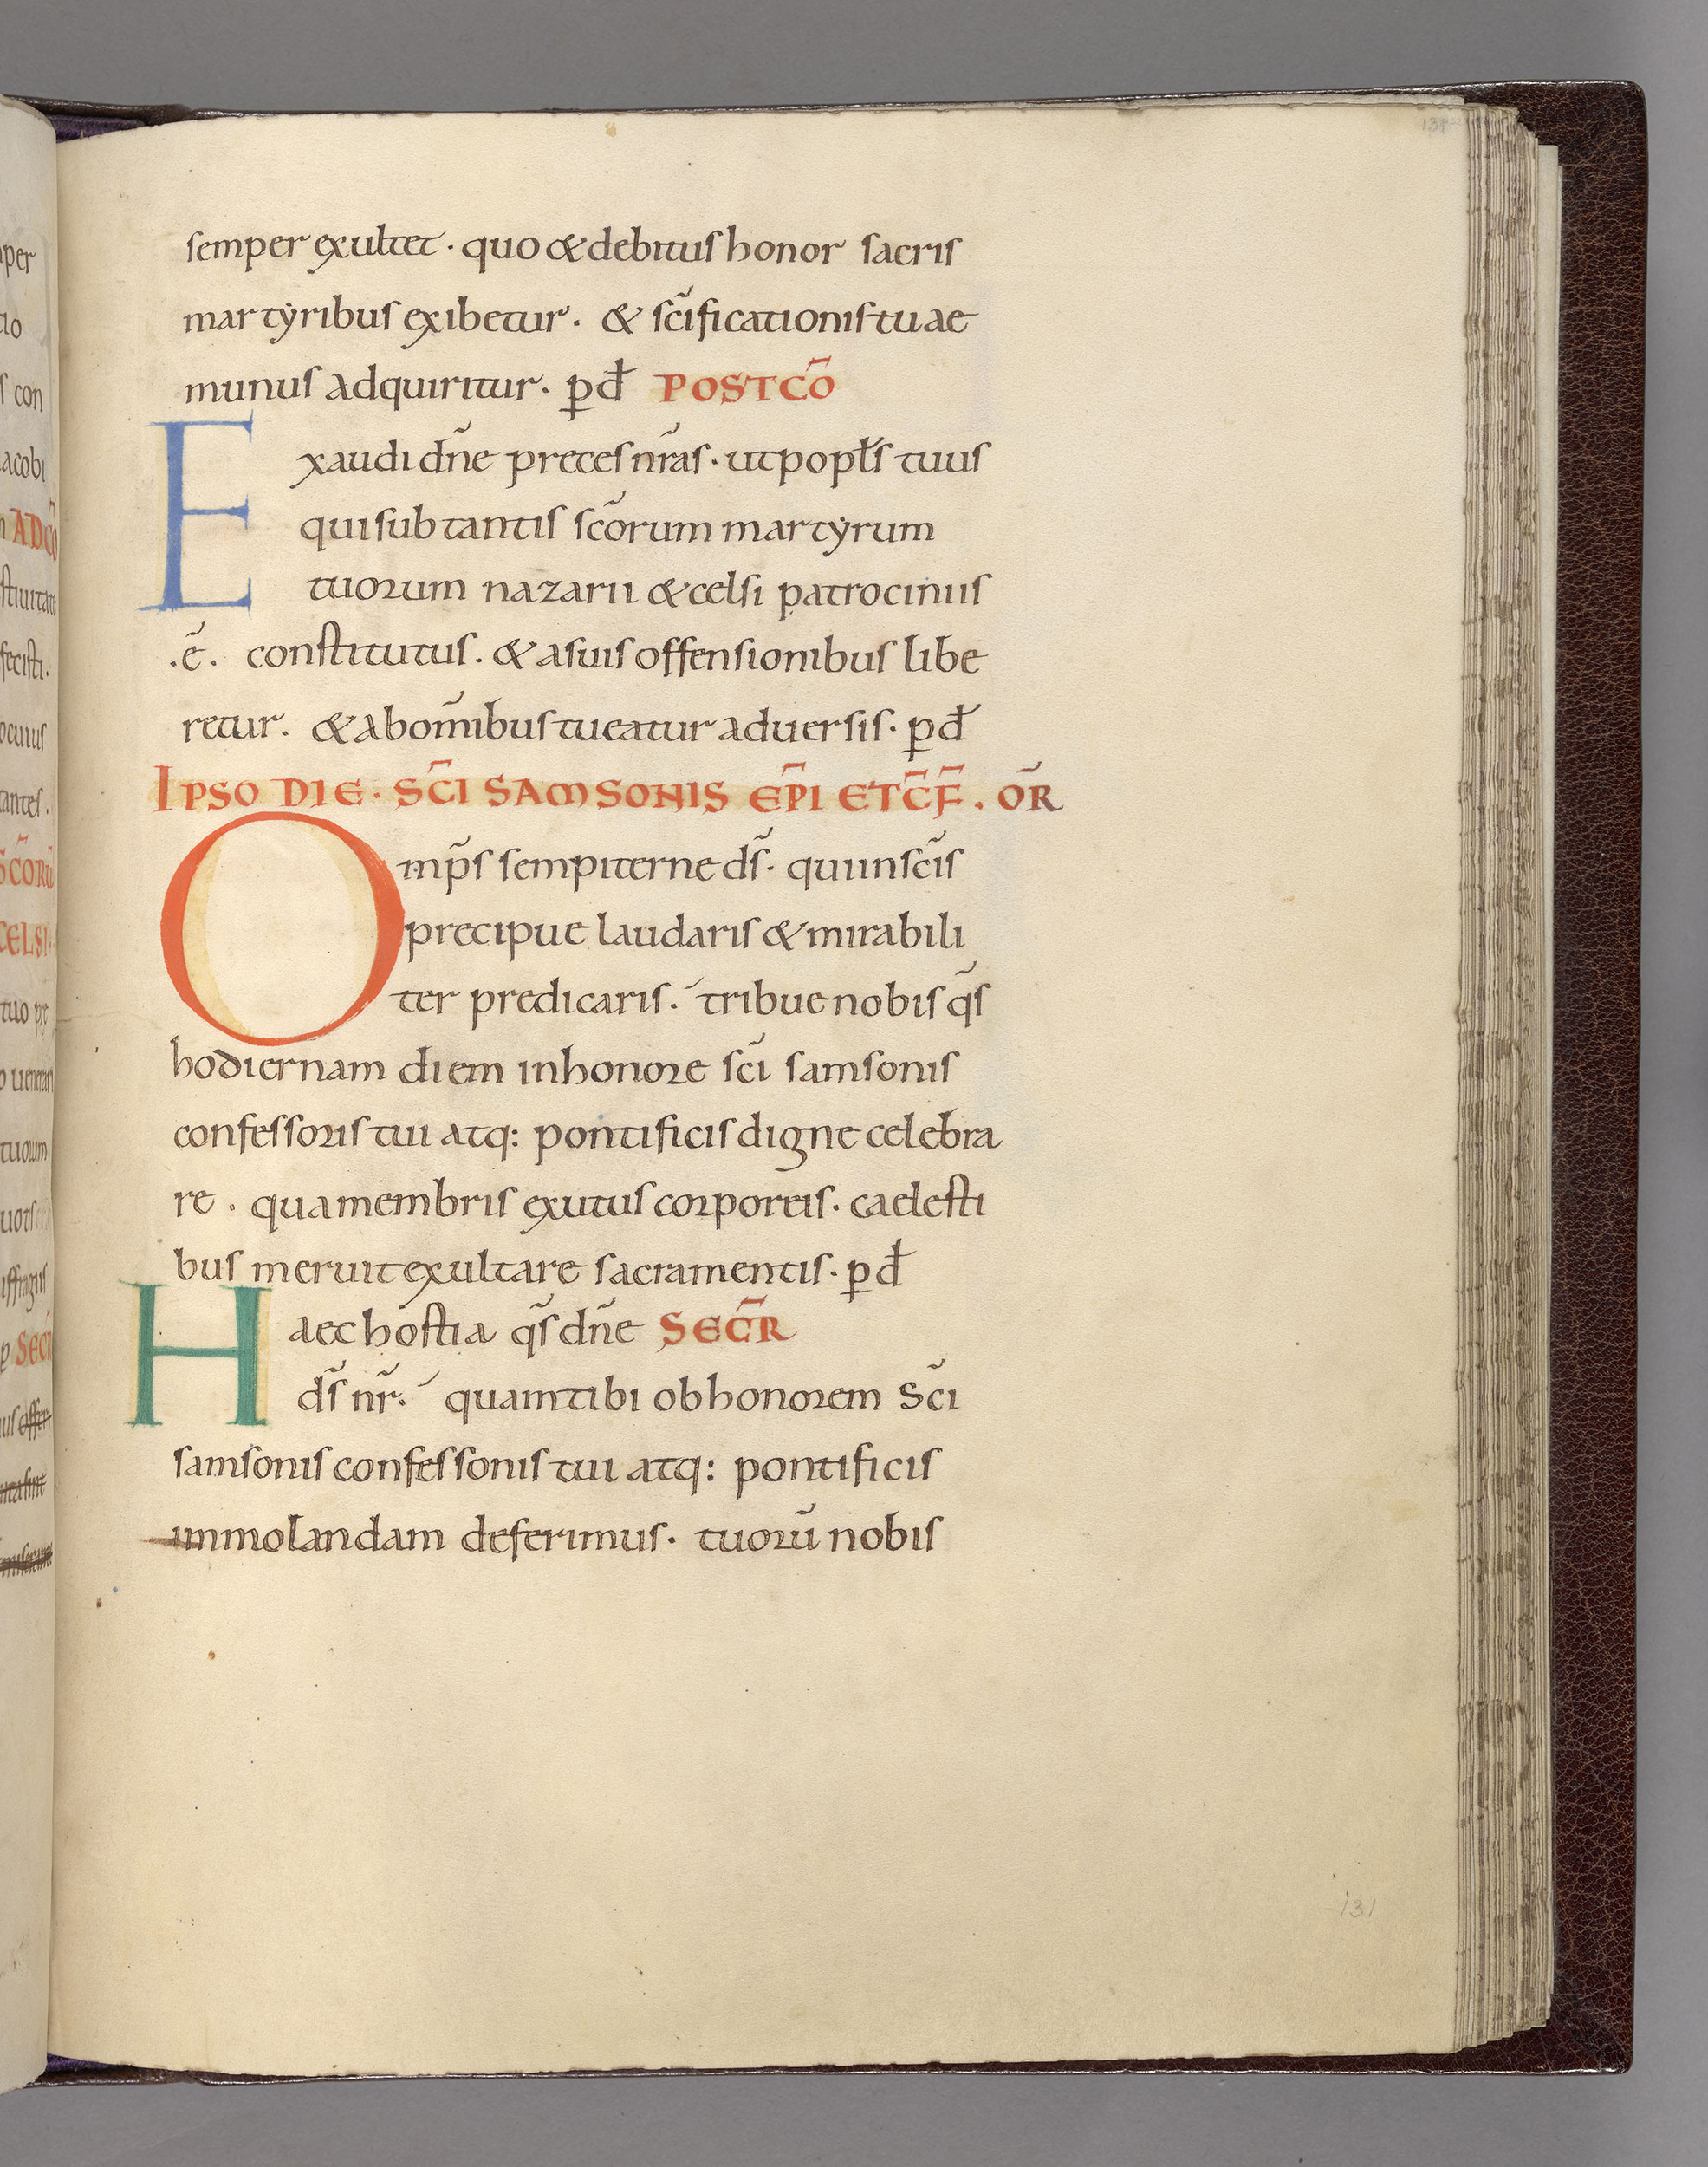 semper exultet · quo & debitus honor sacris
martyribus exibetur · & sc̄ificationis tuae
munus adquiritur · p̱ đ POSTCŌ
Exaudi dn̄e preces nr̄as · ut popłs tuus
qui sub tantis sc̄orum martyrum
tuorum nazarii & celsi patrociniis
·ē· constitutus · & a suis offensionibus libe
retur · & ab om̄ibus tueatur aduersis · p̱ đ
IPSO DIE · SC̄I SAMSONIS EP̄I ET C̄F̄ · OR̄
Omp̄s sempiterne ds̄ · qui in sc̄is
precipue laudaris & mirabili
ter predicaris · tribue nobis qs̄
hodiernam diem in honore sc̄i samsonis
confessoris tui atq: pontificis digne celebra
re · qua membris exutus corporeis · caelesti
bus meruit exultare sacramentis · p̱ đ
Haec hostia qs̄ dn̄e SECR̄
ds̄ nr̄ · quam tibi ob honorem Sc̄i
samsonis confessonis tui atq: pontificis
immolandam deferimus · tuorū nobis
131